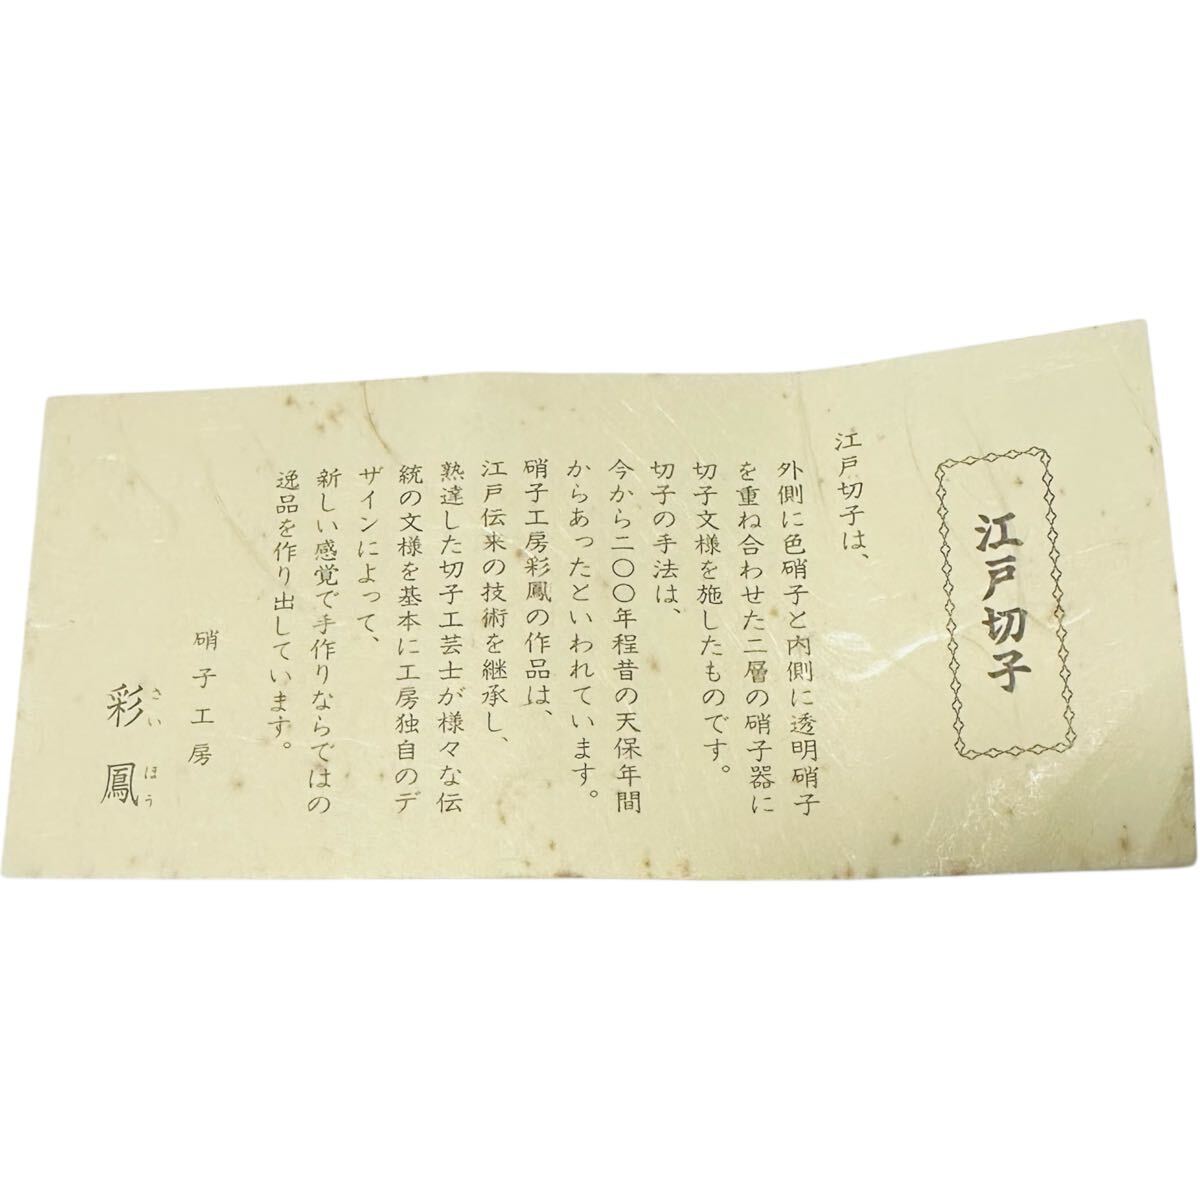 江戸切子
江戸切子は、
外側に色硝子と内側に透明硝子
を重ね合わせた二層の硝子器に
切子文様を施したものです。
切子の手法は、
今から二〇〇年程昔の天保年間
からあったといわれています。
硝子工房彩鳳の作品は、
江戸伝来の技術を継承し、
熟達した切子工芸士が様々な伝
統の文様を基本に工房独自のデ
ザインによって、
新しい感覚で手作りならではの
逸品を作り出しています。
硝子工房
さいほう
彩鳳